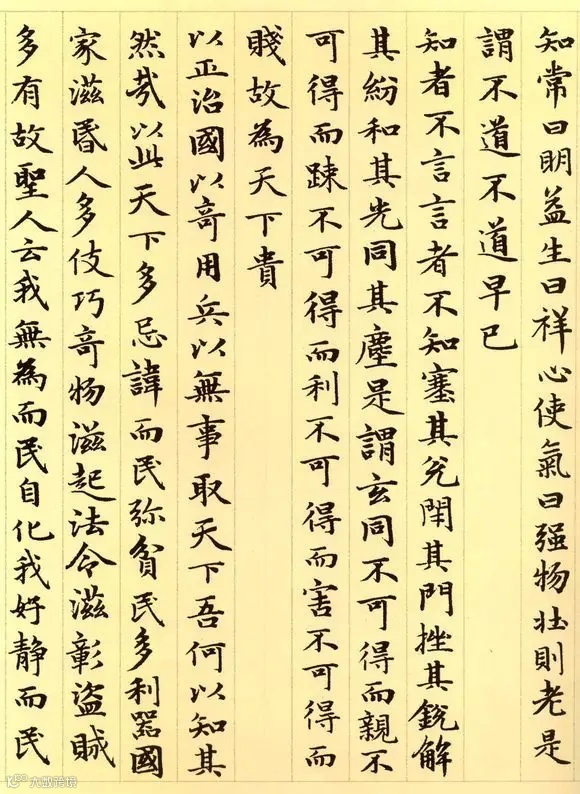 知常曰明益生曰祥心使氣曰强物壯則老是
謂不道不道早已
知者不言言者不知塞其兊閇其門挫其銳解
其紛和其光同其塵是謂玄同不可得而親不
可得而踈不可得而利不可得而害不可得而
賤故為天下貴
以正治國以竒用兵以無事取天下吾何以知其
然哉以此天下多忌諱而民弥貧民多利器國
家滋昏人多伎巧竒物滋起法令滋彰盜賊
多有故聖人云我無為而民自化我好静而民
大数跨境